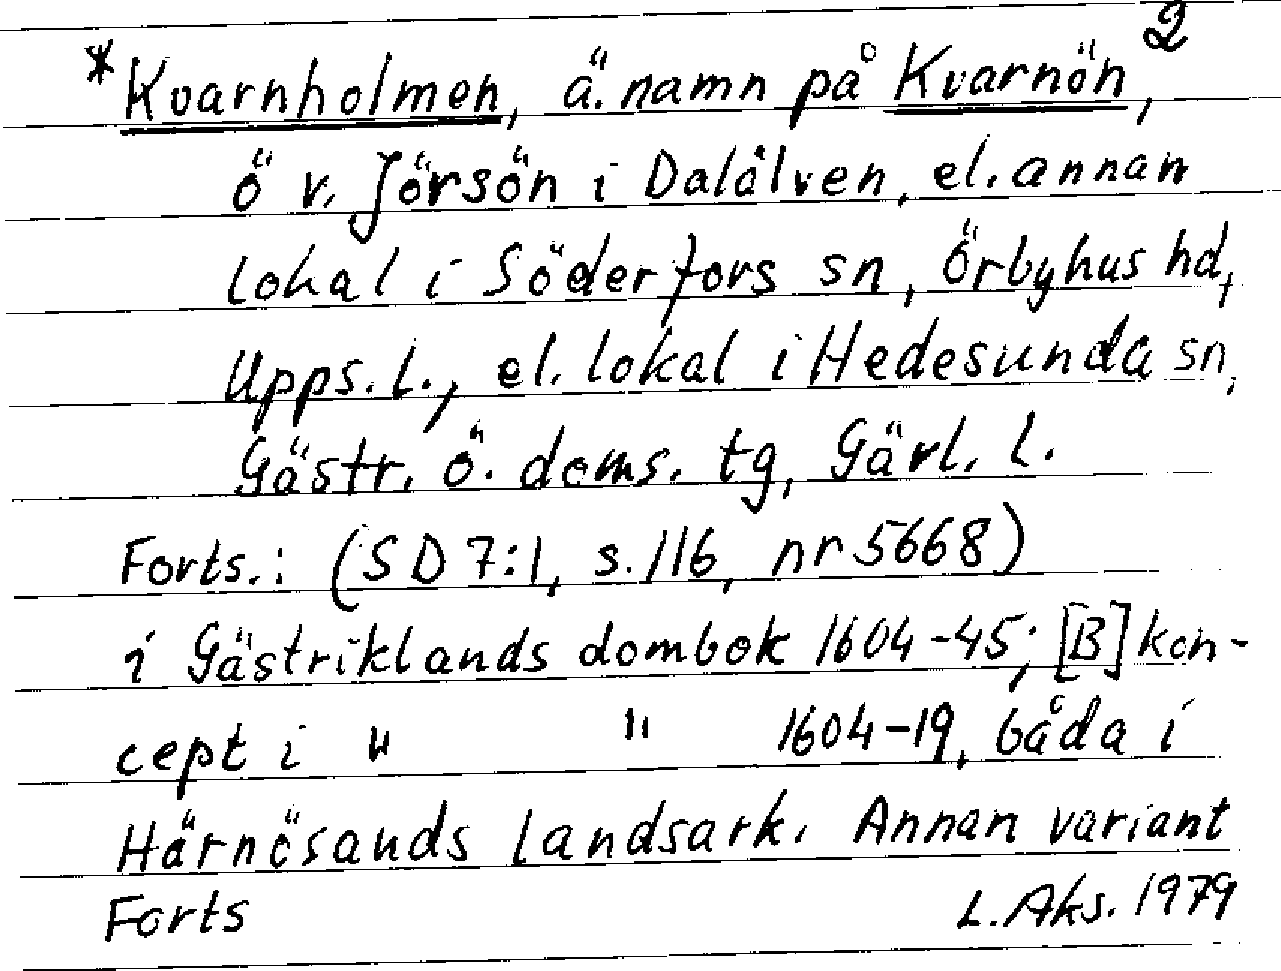 2
*Kvarnholmen, ä. namn på Kvarnön,
ö v. Jörsön i Dalälven, el. annan
lokal i Söderfors sn, Örbyhus hd,
Upps. l., el. lokal i Hedesunda sn,
Gästr. ö. doms. tg, Gävl. l.
Forts.: (SD 7:1, s. 116, nr 5668)
i Gästriklands dombok 1604-45; [B] kon-
cept i " " 1604-19, båda i
Härnösands landsark. Annan variant
Forts L. Aks. 1979